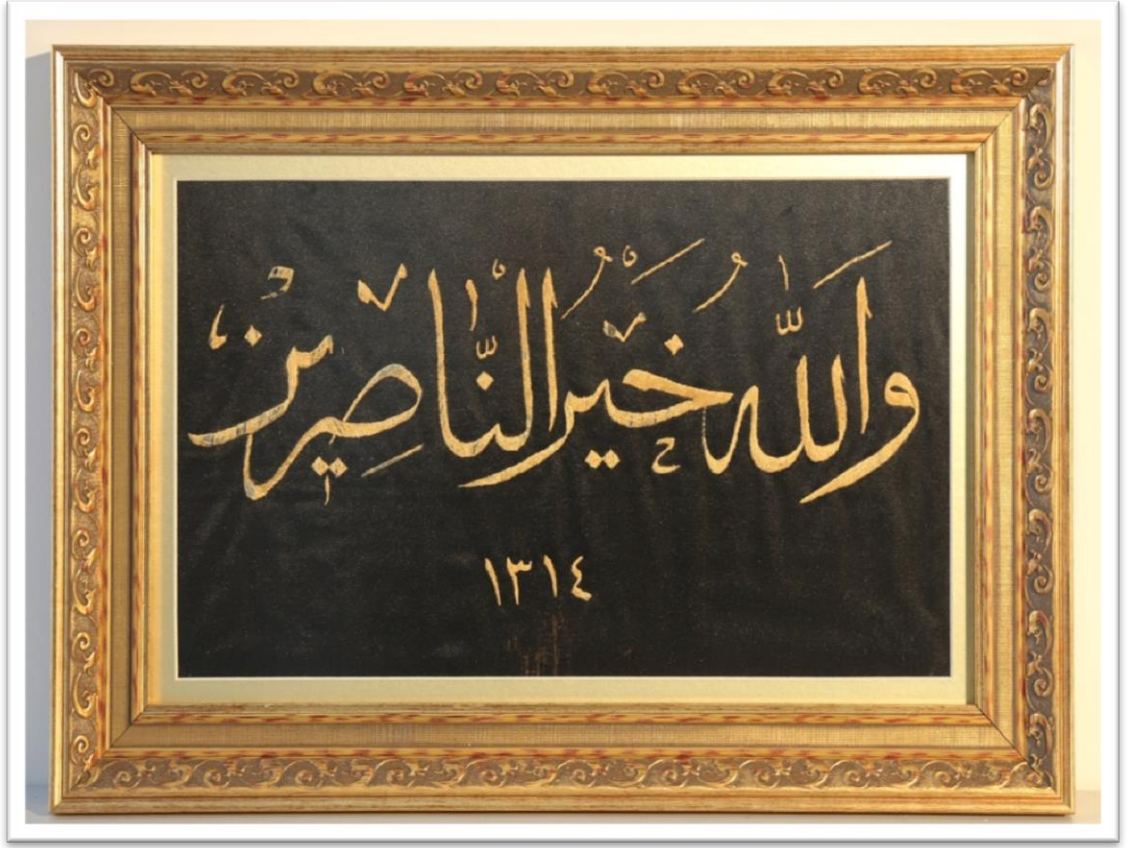 وَاللّٰهُ خَيْرُ النَّاصِرِينَ
١٣١٤